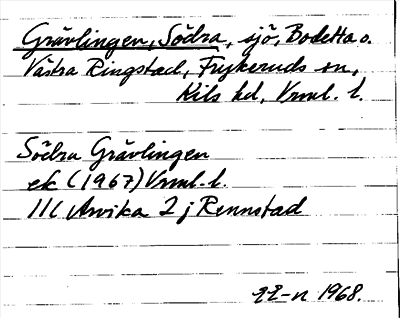 Grävlingen, Södra, sjö, Bodetta o.
Västra Ringstad, Frykeruds sn,
Kils hd, Vrml. l.
Södra Grävlingen
ek (1967) Vrml. l.
11C Arvika 2 j Rennstad
1968.